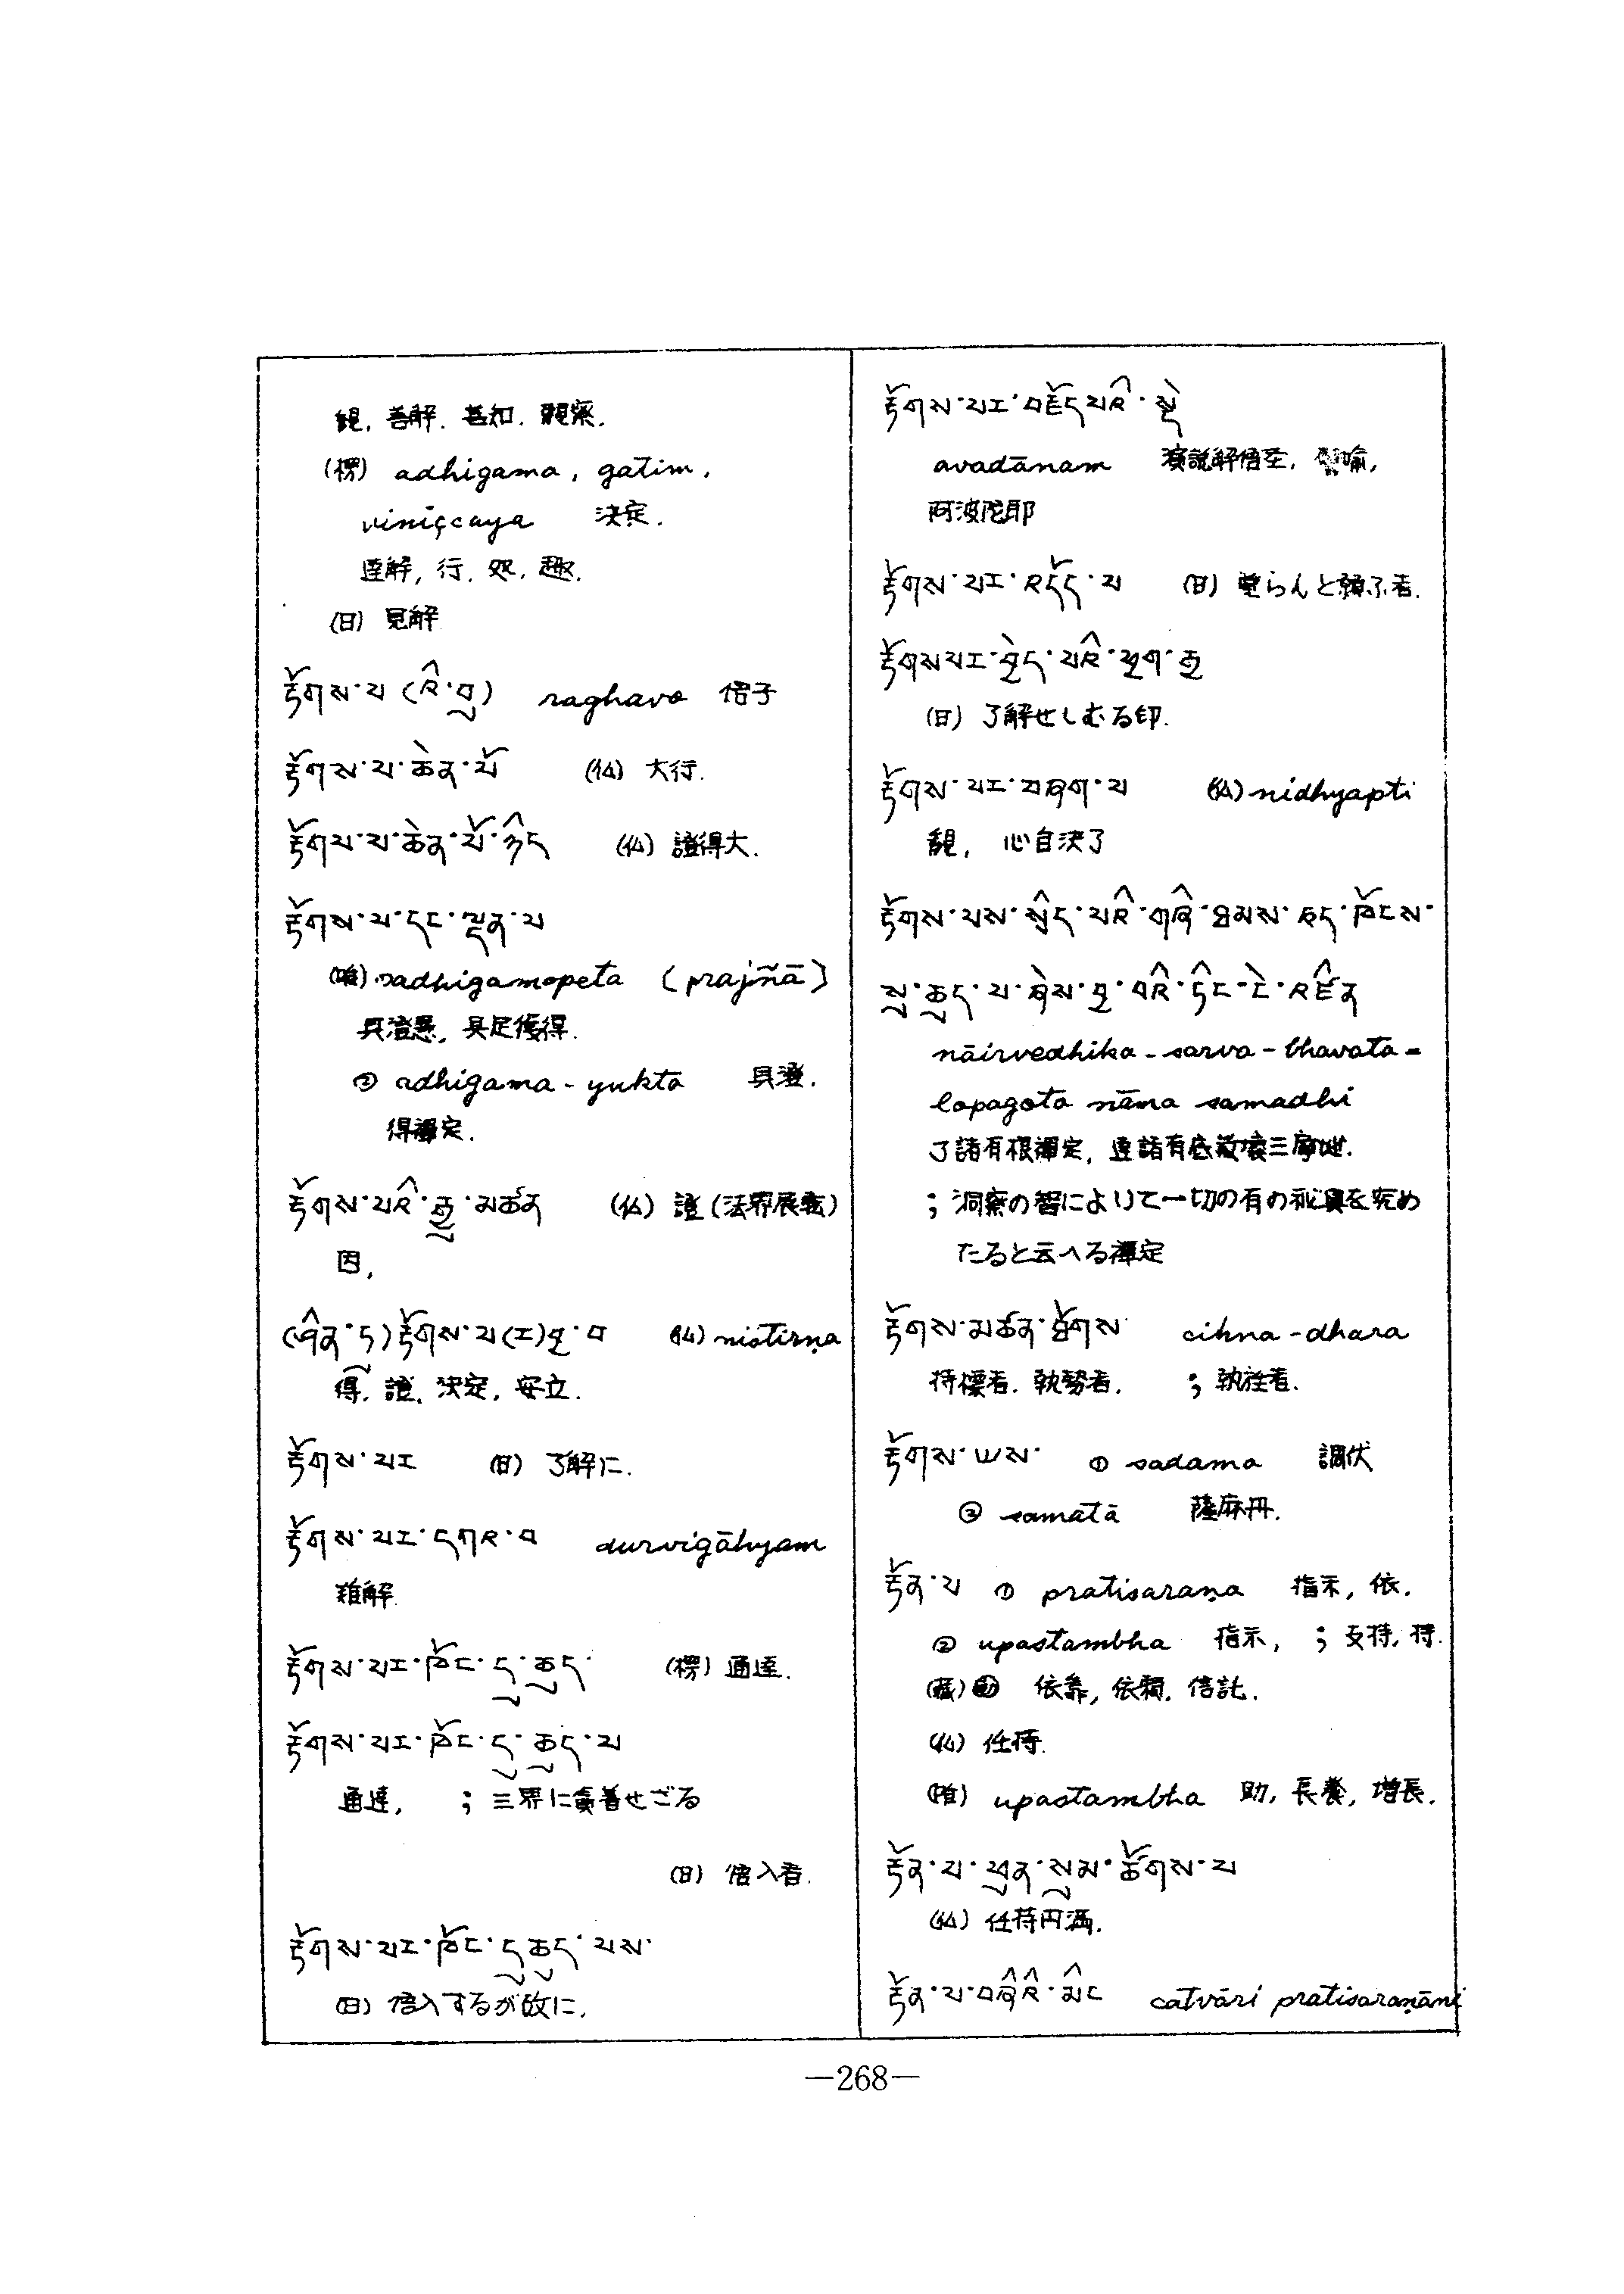 観, 善解. 善知. 観察.
(楞) adhigama, gatim,
viniçcaya 決定.
達解, 行. 処, 趣.
(日) 見解
རྟོགས་པ(འི་བུ) raghava 悟子
རྟོགས་པ་ཆེན་པོ (仏) 大行.
རྟོགས་པ་ཆེན་པོ་ཉིད (仏) 證得大.
རྟོགས་པ་དང་ལྡན་པ
(唯) sadhigamopeta (prajñā)
具足獲得.
② adhigama-yukta 具證.
得禪定.
རྟོགས་པའི་རྒྱུ་མཚན (仏) 證(法界展転)
因,
(ཤིན་ཏུ)རྟོགས་པ(ར)བྱ་བ (仏) nistirṇa
得, 證, 決定, 安立.
རྟོགས་པར (日) 了解に.
རྟོགས་པར་དཀའ་བ durvigāhyam
難解
རྟོགས་པར་ཁོང་དུ་ཆུད་ (楞) 通達.
རྟོགས་པར་ཁོང་དུ་ཆུད་པ
通達, ; 三界に貪着せざる
(日) 悟入者.
རྟོགས་པར་ཁོང་དུ་ཆུད་པས་
(日) 悟入するが故に.
རྟོགས་པར་བརྗོད་པའི་སྡེ
avadānam 演説解悟茎, 譬喩,
阿波陀耶
རྟོགས་པར་འདོད་པ (日) 覚らんと願ふ者.
རྟོགས་པར་བྱེད་པའི་ཕྱག་རྒྱ
(日) 了解せしむる印.
རྟོགས་པར་བཞག་པ (仏) nidhyapti
観, 心自決了
རྟོགས་པས་སྲིད་པའི་གཞི་ཐམས་ཅད་ཁོངས་
སུ་ཆུད་པ་ཞེས་བྱ་བའི་ཏིང་ངེ་འཛིན
nāirvedhika-sarva-bhavata=
lapagato nāma samadhi
了諸有根禪定, 達諸有底散壊三摩地.
; 洞察の智によりて一切の有の秘奥を究め
たると云へる禪定
རྟོགས་མཚན་ཐོགས་ cihna-dhara
持標者. 執勢者. ; 執 者.
རྟོགས་ཡས་ ① sadama 調伏
② samatā 薩麻丹.
རྟོན་པ ① pratisaraṇa 指示, 依.
② upastambha 指示, ; 支持, 持.
(蔵) 動 依靠, 依頼, 信託.
(仏) 任持.
(唯) upastambha 助, 長養, 増長.
རྟོན་པ་ཕུན་སུམ་ཚོགས་པ
(仏) 任持円満.
རྟོན་པ་བཞིའི་མིང catvāri pratisaraṇāni
—268—